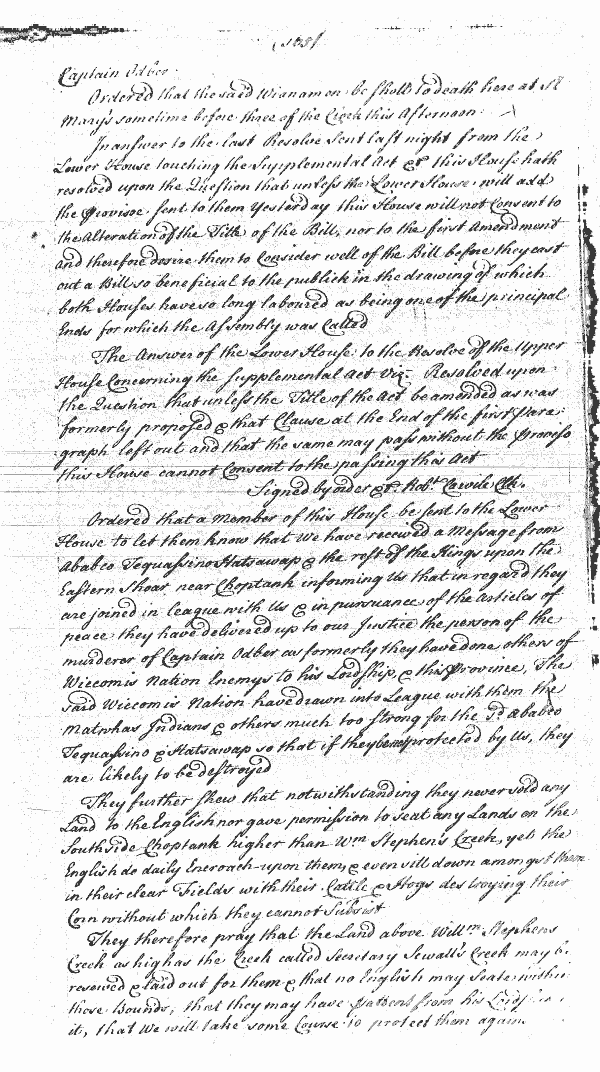 Captain Odber.
Ordered that the said Wianamon be shott to death here at St
Mary's sometime before three of the Clock this Afternoon.
In answer to the last Resolve sent last night from the
Lower House touching the Supplemental Act &c. this House hath
resolved upon the Question that unless the Lower House will add
the Provisoe sent to them Yesterday this House will not Consent to
the Alteration of the Title of the Bill, nor to the first Amendment
And therefore desire them to Consider well of the Bill before they cast
out a Bill so beneficial to the publick in the drawing of which
both Houses have so long laboured as being one of the principal
Ends for which the Assembly was Called
The Answer of the Lower House to the Resolve of the Upper
House Concerning the Supplemental Act Viz. Resolved upon
the Question that unless the Title of the Act be amended as was
formerly proposed & that Clause at the End of the first Para:
graph left out and that the same may pass without the Provisoe
this House cannot Consent to the passing this Act
Signed by order &c. Robt. Carvile Clk.
Ordered that a Member of this House be sent to the Lower
House to let them know that We have received a Message from
Ababco Tequassino Hatsawap & the rest of the Kings upon the
Eastern Shoar near Choptank informing Us that in regard they
are joined in league with Us & in pursuance of the Articles of
peace they have delivered up to our Justice the person of the
murderer of Captain Odber as formerly they have done others of
Wiccomis Nation Enemys to his Lordship & this Province, The
said Wiccomis Nation have drawn into League with them the
Matwhas Indians & others much too strong for the sd. Ababco
Tequassino & Hatsawap so that if they be not protected by Us, they
are likely to be destroyed
They further shew that notwithstanding they never sold any
Land to the English nor gave permission to seat any Lands on the
South side Choptank higher than Wm Stephens Creek, yet the
English do daily Encroach upon them, & even sitt down amongst them
in their clear Fields with their Cattle & Hogs destroying their
Corn without which they cannot Subsist
They therefore pray that the Land above Willm Stephens
Creek as high as the Creek called Secretary Sewall's Creek may be
reserved & laid out for them & that no English may Seate within
those Bounds, that they may have Patent from his Lordsp
it, that We will take some Course to protect them again